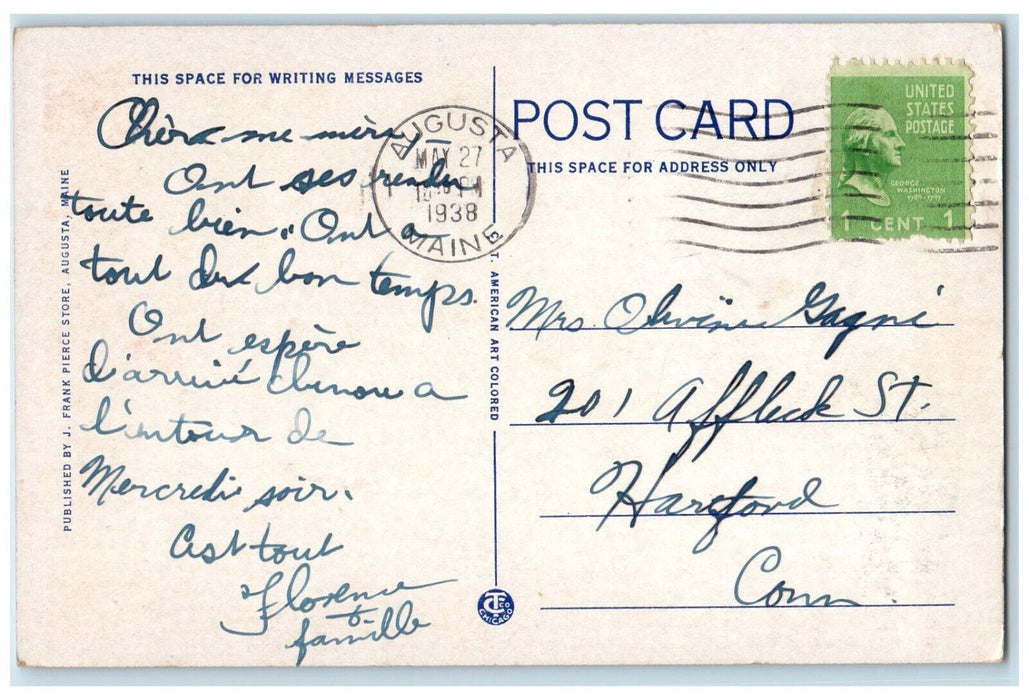 THIS SPACE FOR WRITING MESSAGES
Chère me mère
Ont ses rendu
toute bien. Ont a
tout dux bon temps.
Ont espère
d'arrivé chenou a
l'entour de
Mercredi soir.
Cest tout
Florence
&
famille
PUBLISHED BY J. FRANK PIERCE STORE, AUGUSTA, MAINE
C. T. AMERICAN ART COLORED
AUGUSTA
MAY 27
PM
1938
MAINE
POST CARD
THIS SPACE FOR ADDRESS ONLY
UNITED
STATES
POSTAGE
GEORGE
WASHINGTON
1789-1797
1 CENT 1
Mrs Olivine Gagné
201 Affleck St.
Hartford
Conn.
CT
CO
CHICAGO